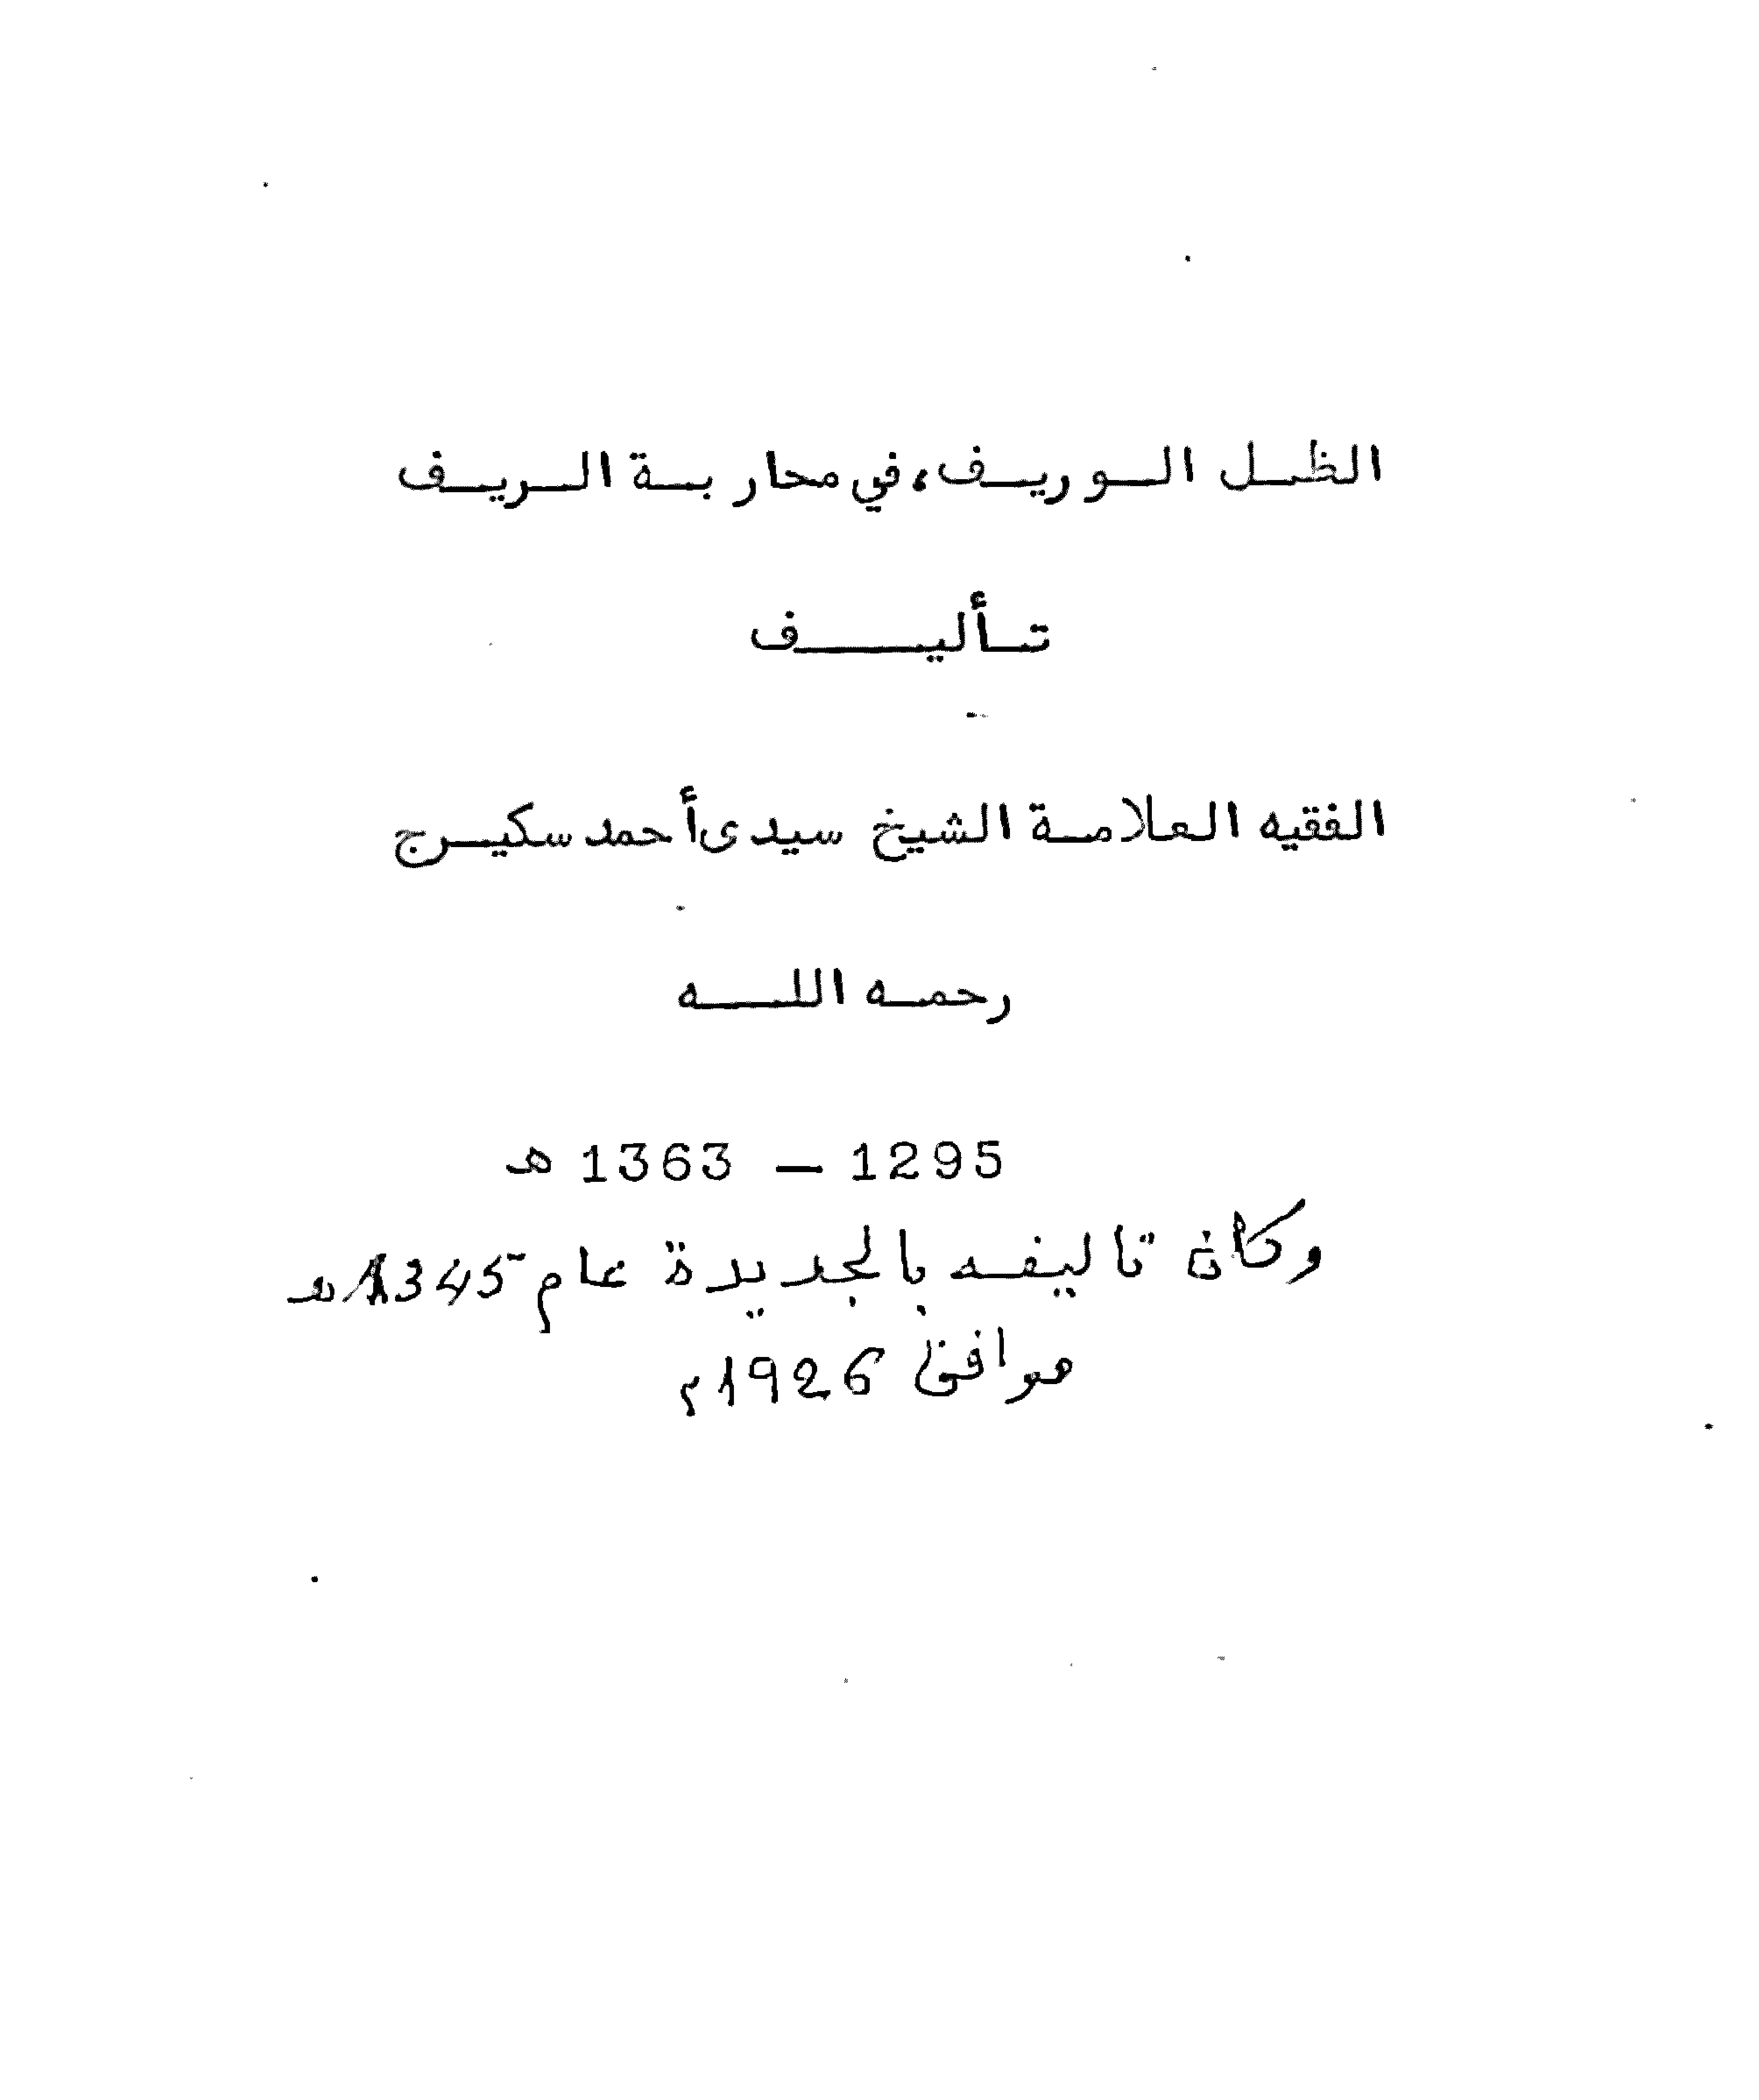 الظل الوريف، في محاربة الريف
تأليف
الفقيه العلامة الشيخ سيدى أحمد سكيرج
رحمه الله
1295 – 1363 هـ
وكان تاليفه بالجديدة عام 1345هـ
موافق 1926م